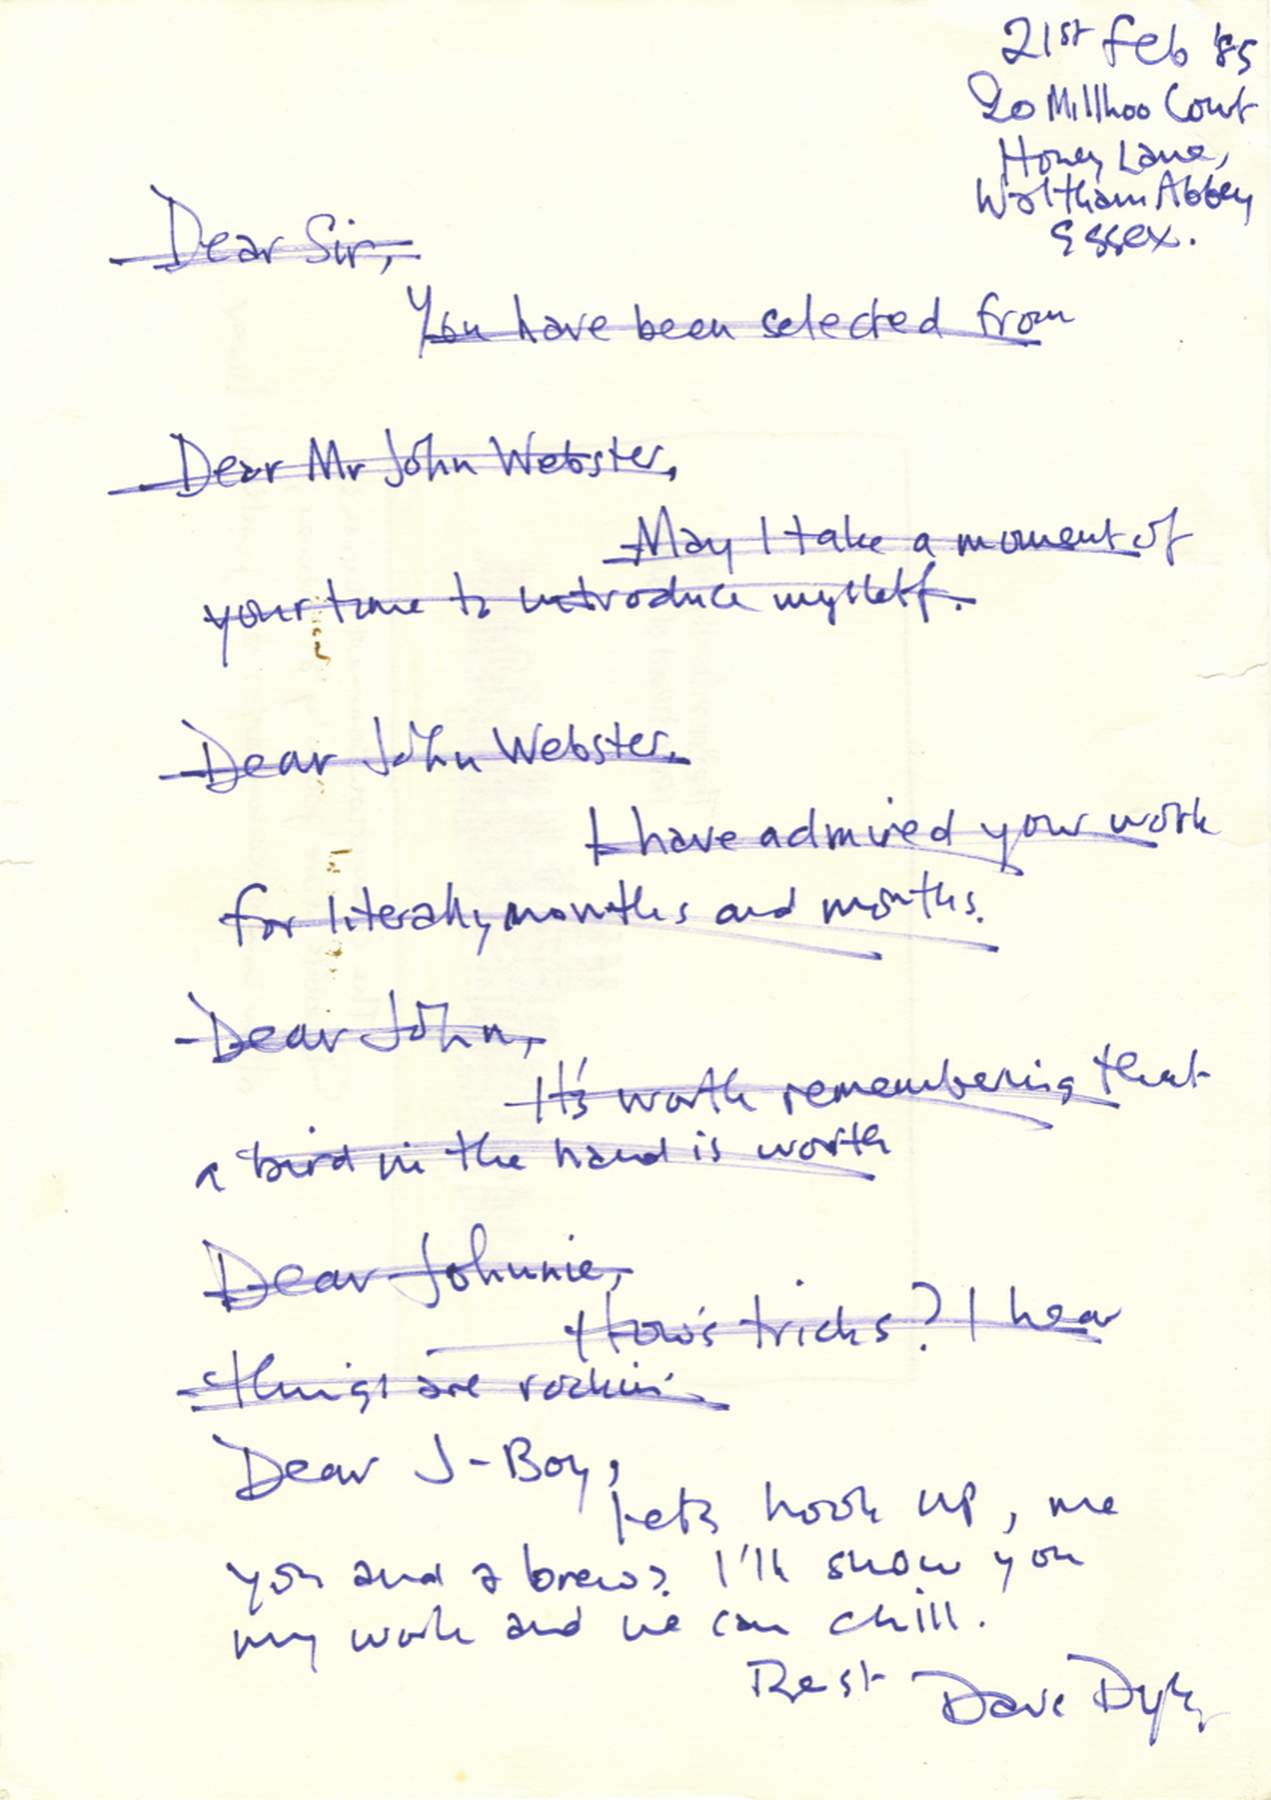 21st Feb '85
20 Millhoo Court
Honey Lane,
Waltham Abbey
Essex.
Dear Sir,
You have been selected from
Dear Mr John Webster,
May I take a moment of
your time to introduce myslelf.
Dear John Webster,
I have admired your work
for literally months and months.
Dear John,
It's worth remembering that
a bird in the hand is worth
Dear Johnnie,
How's tricks? I hear
things are rockin'.
Dear J-Boy,
Let's hook up, me
you and a brew? I'll show you
my work and we can chill.
Best Dave Dye